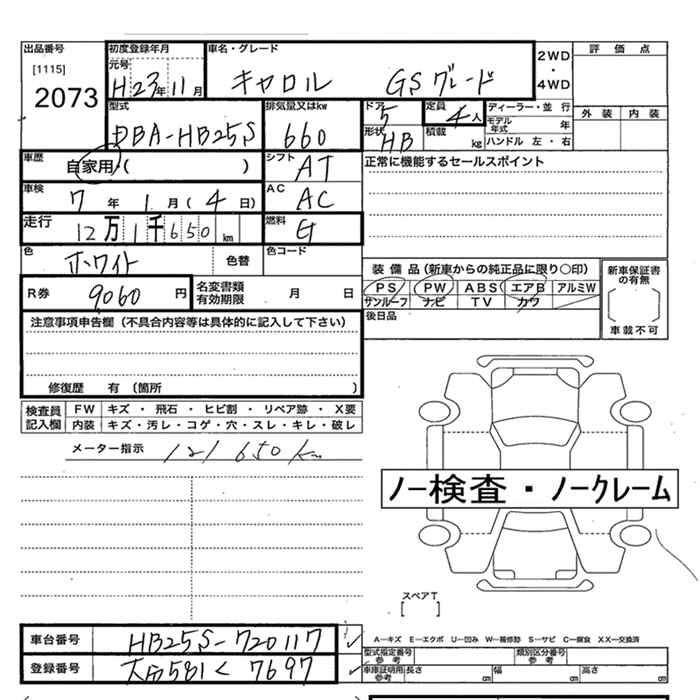 出品番号
[1115]
2073
初度登録年月
元号
H23年11月
車名・グレード
キャロル GSグレード
2WD
・
4WD
評価点
外装 内装
型式
DBA-HB25S
排気量又はkw
660
ドア
5
形状
HB
定員
4人
積載
kg
ディーラー・並行
モデル年式 年
ハンドル 左・右
車歴
自家用・( )
シフト
AT
正常に機能するセールスポイント
車検
7年1月(4日)
AC
AC
走行
12万1千650km
燃料
G
色
ホワイト
色替
色コード
装備品(新車からの純正品に限り○印)
PS PW ABS エアB アルミW
サンルーフ ナビ TV カワ
新車保証書
の有無
車載不可
R券
9060円
名変書類
有効期限
月 日
後日品
注意事項申告欄(不具合内容等は具体的に記入して下さい)
修復歴 有(箇所 )
検査員
記入欄
FW キズ・飛石・ヒビ割・リペア跡・X要
内装 キズ・汚レ・コゲ・穴・スレ・キレ・破レ
メーター指示 121650km
ノー検査・ノークレーム
スペアT
[ ]
A—キズ E—エクボ U—凹み W—補修跡 S—サビ C—腐食 XX—交換済
車台番号
HB25S-720117
登録番号
大分581く7697
型式指定番号
参考
類別区分番号
参考
車庫証明用
参考
長さ cm 幅 cm 高さ cm